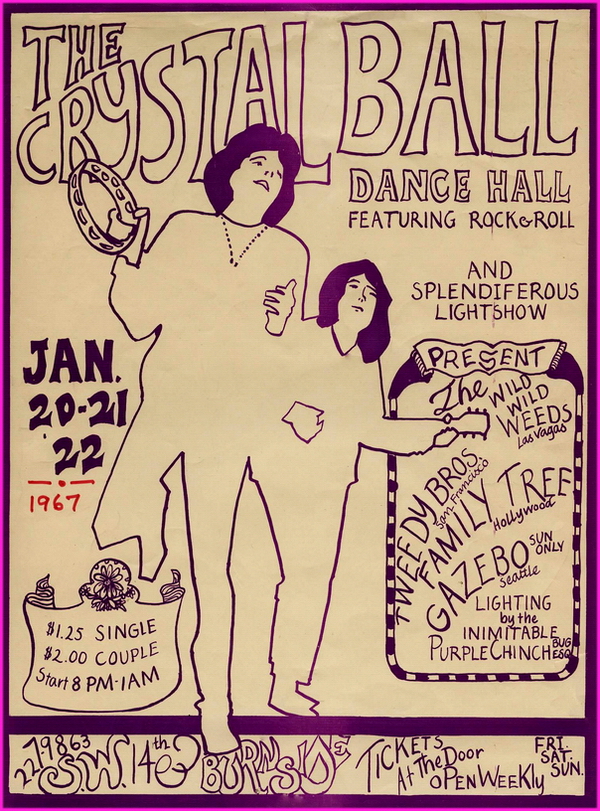 THE
CRYSTAL BALL
DANCE HALL
FEATURING ROCK & ROLL
AND
SPLENDIFEROUS
LIGHTSHOW
JAN.
20-21
'22
1967
PRESENT
The WILD
WILD
WEEDS
Las Vagas
TWEEDY BROS.
San Francisco
FAMILY TREE
Hollywood
GAZEBO SUN ONLY
Seattle
LIGHTING
by the
INIMITABLE
PURPLE CHINCH BUG ESQ
$1.25 SINGLE
$2.00 COUPLE
Start 8 PM-1AM
2279863
S.W. 14th & BURNSIDE
TICKETS
At The Door
OPEN WEEKLY
FRI.
SAT.
SUN.